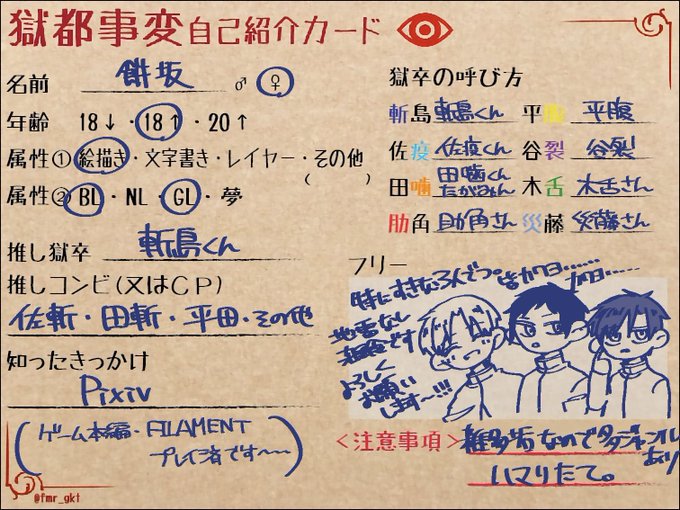 獄都事変自己紹介カード
名前 餅坂 ♂・♀
年齢 18↓・18↑・20↑
属性① 絵描き・文字書き・レイヤー・その他
( )
属性② BL・NL・GL・夢
推し獄卒 斬島くん
推しコンビ(又はCP)
佐斬・田斬・平田・その他
知ったきっかけ
Pixiv
(ゲーム本編・FILAMENT
プレイ済です〜〜)
@fmr_gkt
獄卒の呼び方
斬島 斬島くん 平腹 平腹
佐疫 佐疫くん 谷裂 谷裂
田噛 田噛くん
たがみん 木舌 木舌さん
肋角 肋角さん 災藤 災藤さん
フリー
特にすきな3人でっ。皆カワヨ……
カワヨ……
地雷なし
雑食です
よろしく
お願い
します〜!!!
<注意事項> 雑多垢なので多ジャンル
あり
ハマりたて。